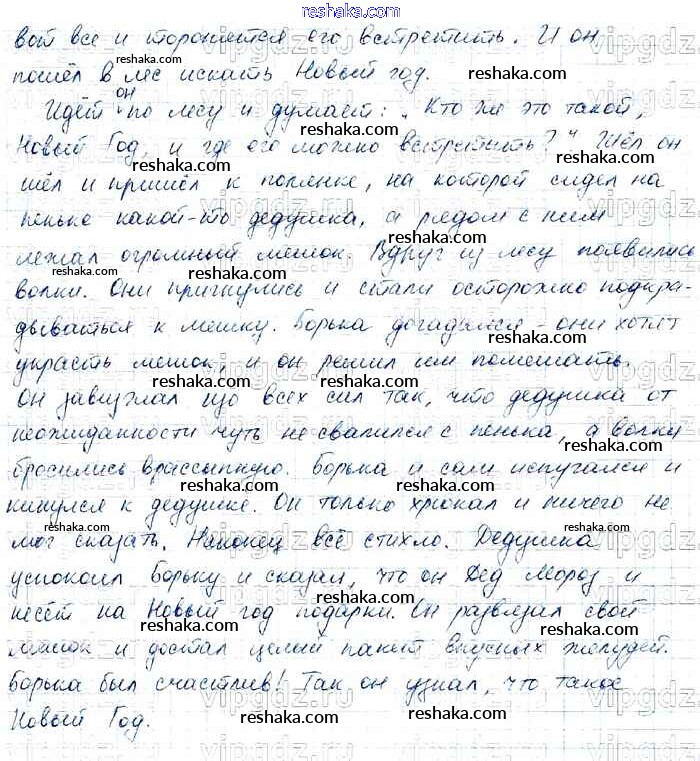 reshaka.com
вот все и торопятся его встретить. И он
пошёл в лес искать Новый год.
Идёт он по лесу и думает: „Кто же это такой,
Новый Год, и где его можно встретить?" Шёл он
шёл и пришёл к полянке, на которой сидел на
пеньке какой-то дедушка, а рядом с ним
лежал огромный мешок. Вдруг из лесу появились
волки. Они пригнулись и стали осторожно подкра-
дываться к мешку. Борька догадался - они хотят
украсть мешок, и он решил им помешать.
Он завизжал изо всех сил так, что дедушка от
неожиданности чуть не свалился с пенька, а волки
бросились врассыпную. Борька и сам испугался и
кинулся к дедушке. Он только хрюкал и ничего не
мог сказать. Наконец всё стихло. Дедушка
успокоил Борьку и сказал, что он Дед Мороз и
несёт на Новый год подарки. Он развязал свой
мешок и достал целый пакет вкусных желудей.
Борька был счастлив! Так он узнал, что такое
Новый Год.